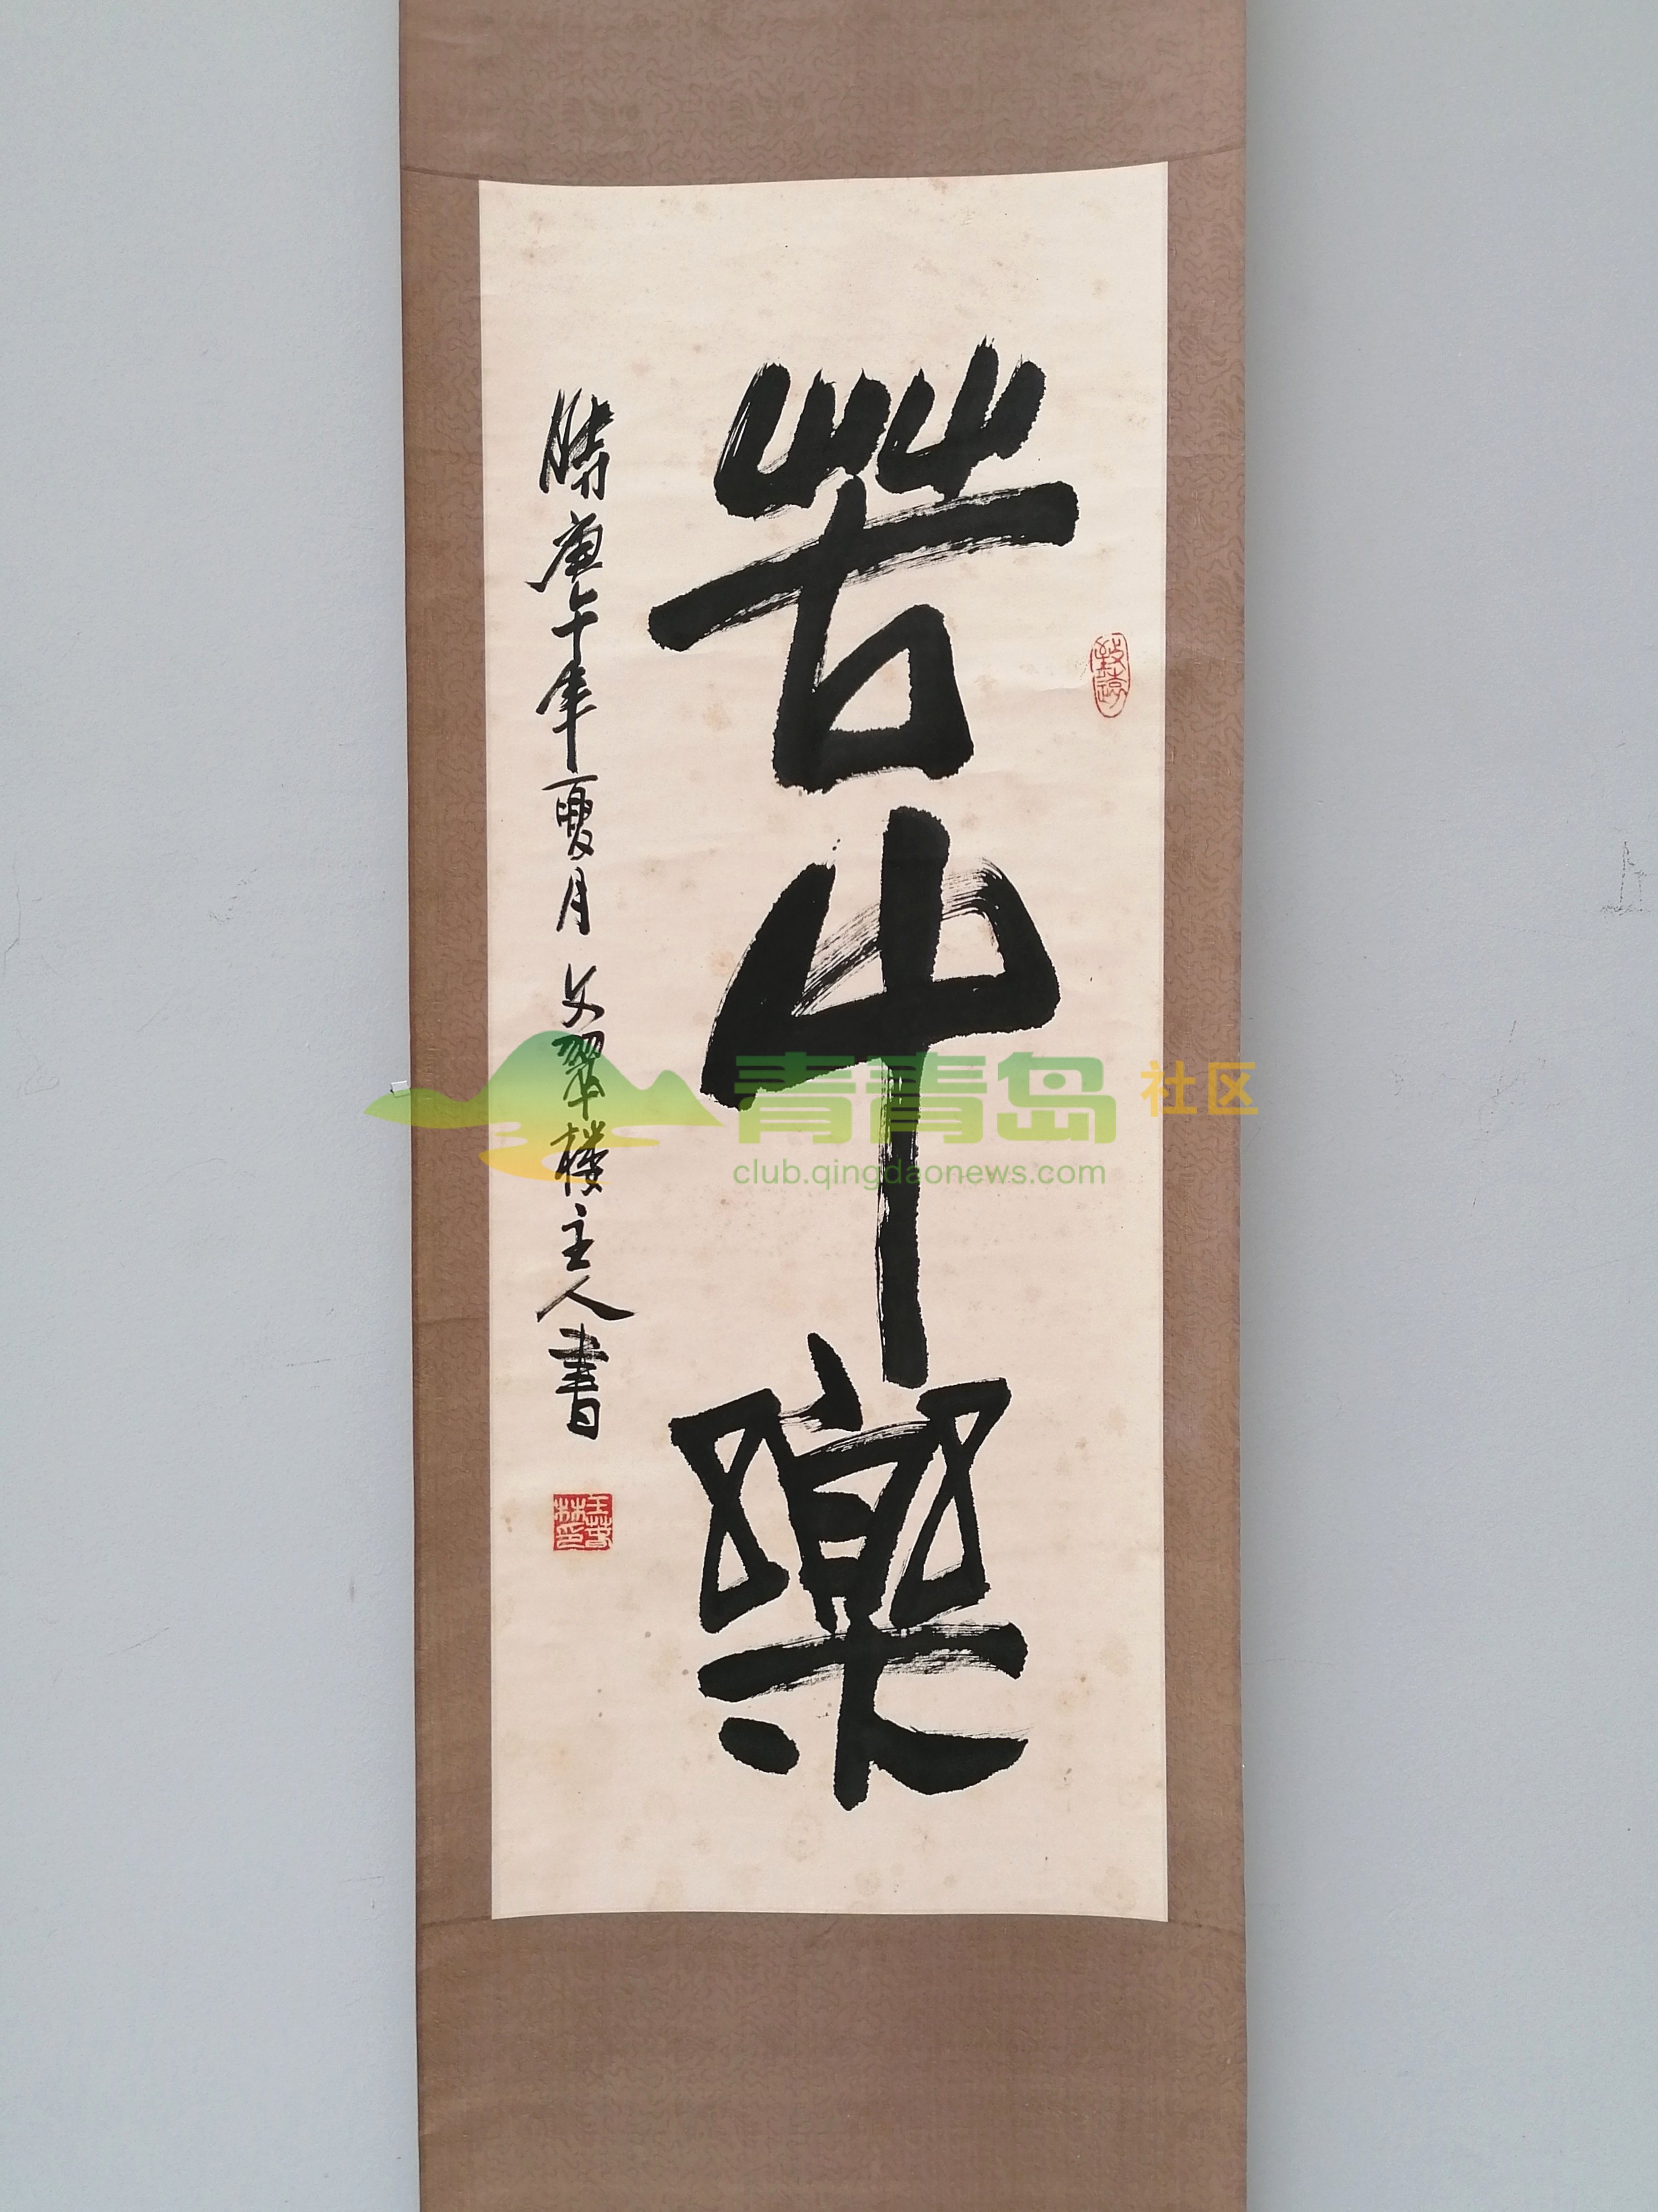 苦中樂
時庚午年夏月 文翠楼主人書
致遠
王葊林印
青青岛 社区
club.qingdaonews.com